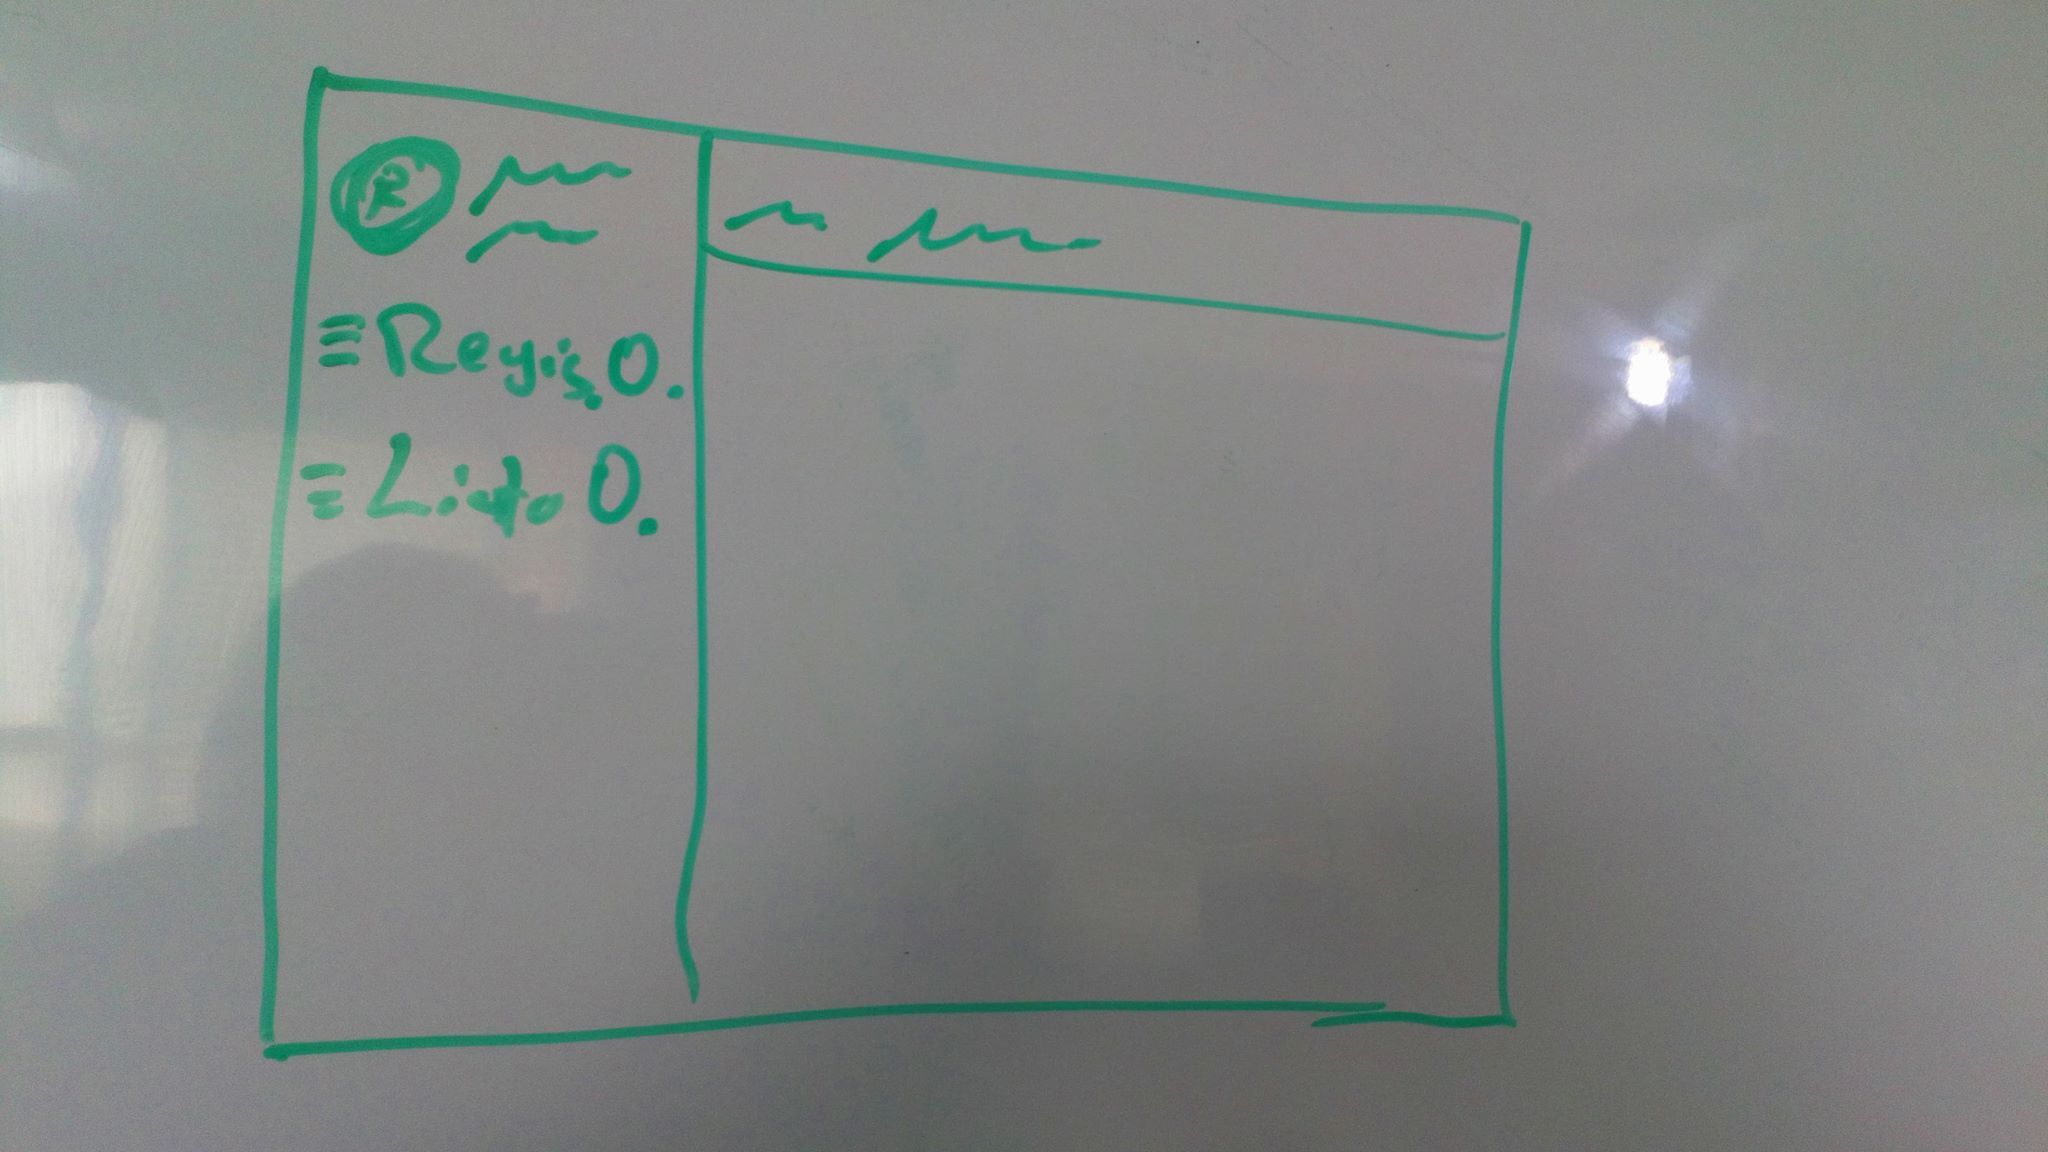 R
≡ Regis. O.
≡ Listo O.